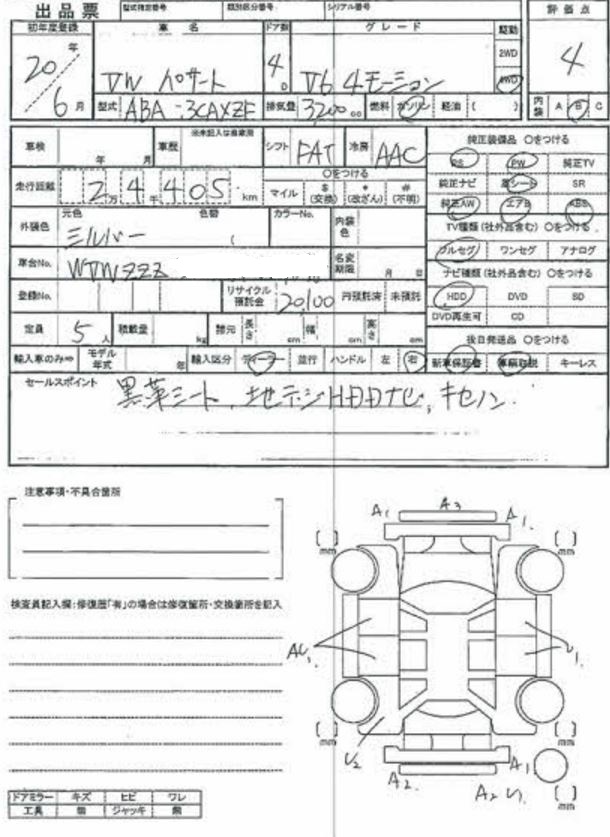 出品票 型式指定番号 類別区分番号 シリアル番号
初年度登録 車名 ドア数 グレード 駆動 評価点
20年 6月 VW パサート 4D V6 4モーション 2WD 4WD 4
型式 ABA-3CAXZF 排気量 3200cc 燃料 ガソリン 軽油 ( ) 内装 A B C
車検 年 月 車歴 ※未記入は自家用 シフト FAT 冷房 AAC 純正装備品 ○をつける
PS PW 純正TV
走行距離 2万4千405km ○をつける マイル $(交換) *(改ざん) #(不明) 純正ナビ 革シート SR
純正AW エアB ABS
外装色 元色 シルバー 色替 ( カラーNo. 内装色 TV種類(社外品含む) ○をつける
フルセグ ワンセグ アナログ
車台No. WVWZZZ 名変期限 月 日 ナビ種類(社外品含む) ○をつける
登録No. リサイクル預託金 20,100 円預託済 未預託 HDD DVD SD
DVD再生可 CD
定員 5人 積載量 kg 諸元 長さ cm 幅 cm 高さ cm 後日発送品 ○をつける
輸入車のみ⇒ モデル年式 年 輸入区分 ディーラー 並行 ハンドル 左 右 新車保証書 車輌取説 キーレス
セールスポイント 黒革シート、地デジHDDナビ、キセノン
注意事項・不具合箇所
A1 A3 A1.
[ ]mm [ ]mm
検査員記入欄:修復歴「有」の場合は修復箇所・交換箇所を記入
AU1 U1.
[ ]mm [ ]mm
U2 A2. A1
A2 U1. [ ]mm
ドアミラー キズ ヒビ ワレ
工具 ジャッキ 無